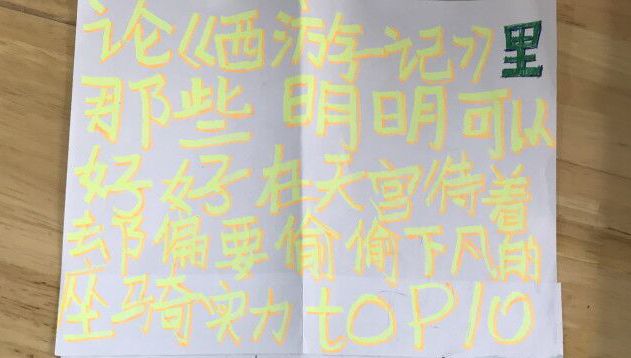 论《西游记》里
那些明明可以
好好在天宫待着
却偏要偷偷下风的
座骑实力top10